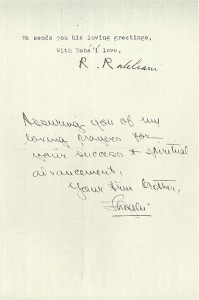 He sends you his loving greetings,
With Bahá'í love,
R. Rabbani
Assuring you of my
loving prayers for
your success & spiritual
advancement,
Your true brother,
Shoghi